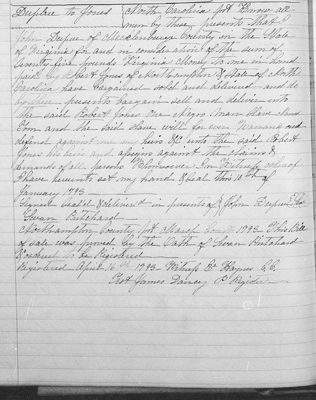 Dupree to Jones North Carolina pt Know all
men by these presents that I
John Dupree of Mecklenburg County on the State
of Virginia for and in consideration of the sum of
Seventy five pounds Virginia Money to me in hand
paid by Robert Jones of Northampton & State of North
Carolina have bargained sold and delivered and do
by these presents bargain sell and deliver unto
the said Robert Jones one Negro man slave named
Tom and the said slave will for ever warrant and
defend against me my heirs &c unto the said Robert
Jones his heirs and assigns against the claims &
demands of all persons Whomsoever In Witness whereof
I have hereunto set my hand & seal this 11th of
January 1793
Signed Seal'd & deliver'd in presence of John Dupree
Swan Pritchard
Northampton County pt March Court 1793 This Bill
of sale was proved by the Oath of Swan Pritchard
& ordered to be Registered
Registered April 16 1793 Witness Haynes C.C.
Test James Dancy P. Register